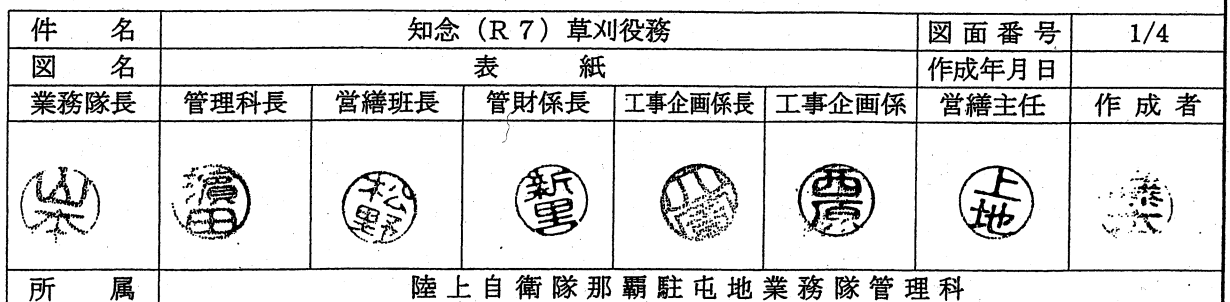 件 名 知念（R７）草刈役務 図面番号 1/4
図 名 表 紙 作成年月日
業務隊長 管理科長 営繕班長 管財係長 工事企画係長 工事企画係 営繕主任 作成者
山本 濵田 松野 新里 西原 上地
所 属 陸上自衛隊那覇駐屯地業務隊管理科